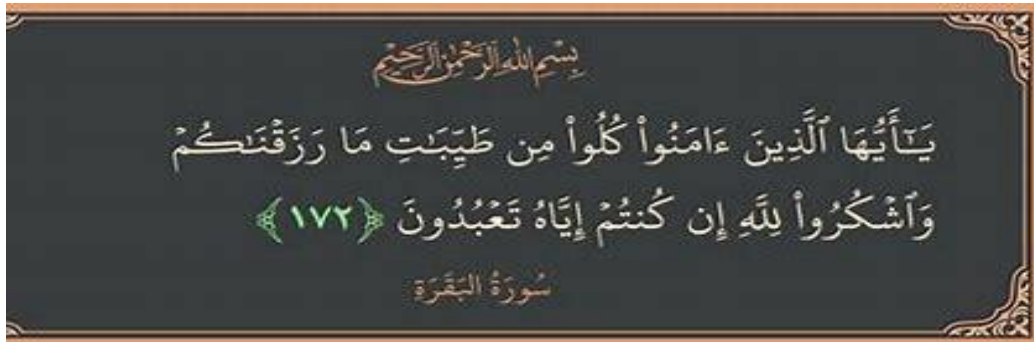 بِسْمِ اللهِ الرَّحْمٰنِ الرَّحِيْمِ
يَـٰٓأَيُّهَا ٱلَّذِينَ ءَامَنُوا۟ كُلُوا۟ مِن طَيِّبَـٰتِ مَا رَزَقْنَـٰكُمْ
وَٱشْكُرُوا۟ لِلَّهِ إِن كُنتُمْ إِيَّاهُ تَعْبُدُونَ ﴿١٧٢﴾
سُورَةُ البَقَرَةِ